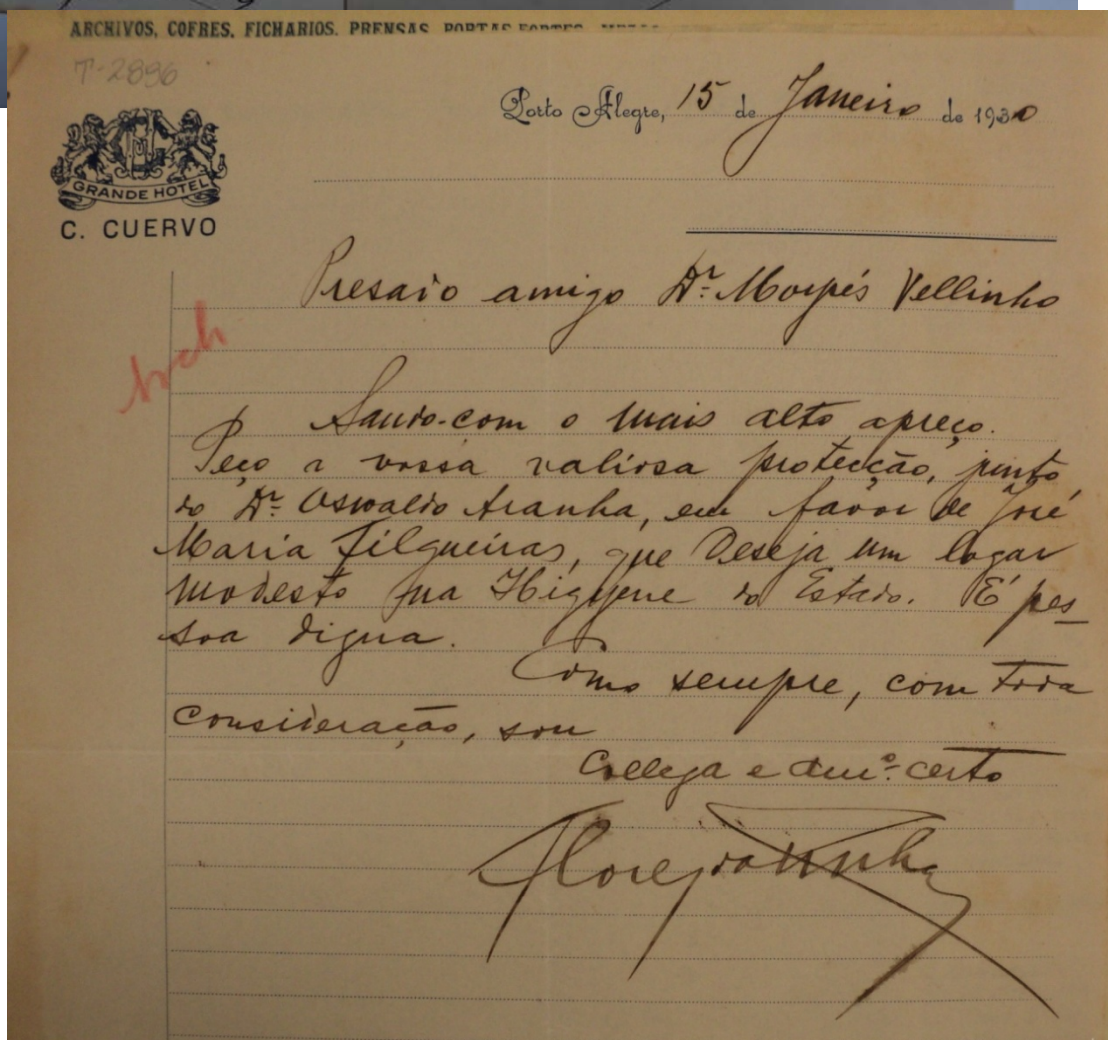 ARCHIVOS, COFRES, FICHARIOS, PRENSAS, PORTAS FORTES,
T-2896
Porto Alegre, 15 de Janeiro de 1930
GRANDE HOTEL
C. CUERVO
Presado amigo Dr. Moysés Vellinho
Arch
Saudo-com o mais alto apreço.
Peço a vossa valiosa protecção, junto
do Dr. Oswaldo Aranha, em favor de José
Maria Filgueiras, que deseja um logar
modesto na Higyene do Estado. É pes-
soa digna.
Como sempre, com toda
consideração, sou
Collega e amº. certo
Flores da Cunha